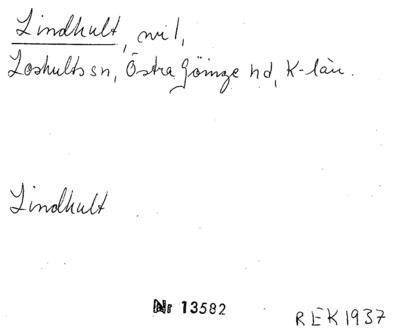 Lindhult, vil,
Loshults sn, Östra Göinge hd, K-län.
Lindhult
Nr 13582
REK 1937